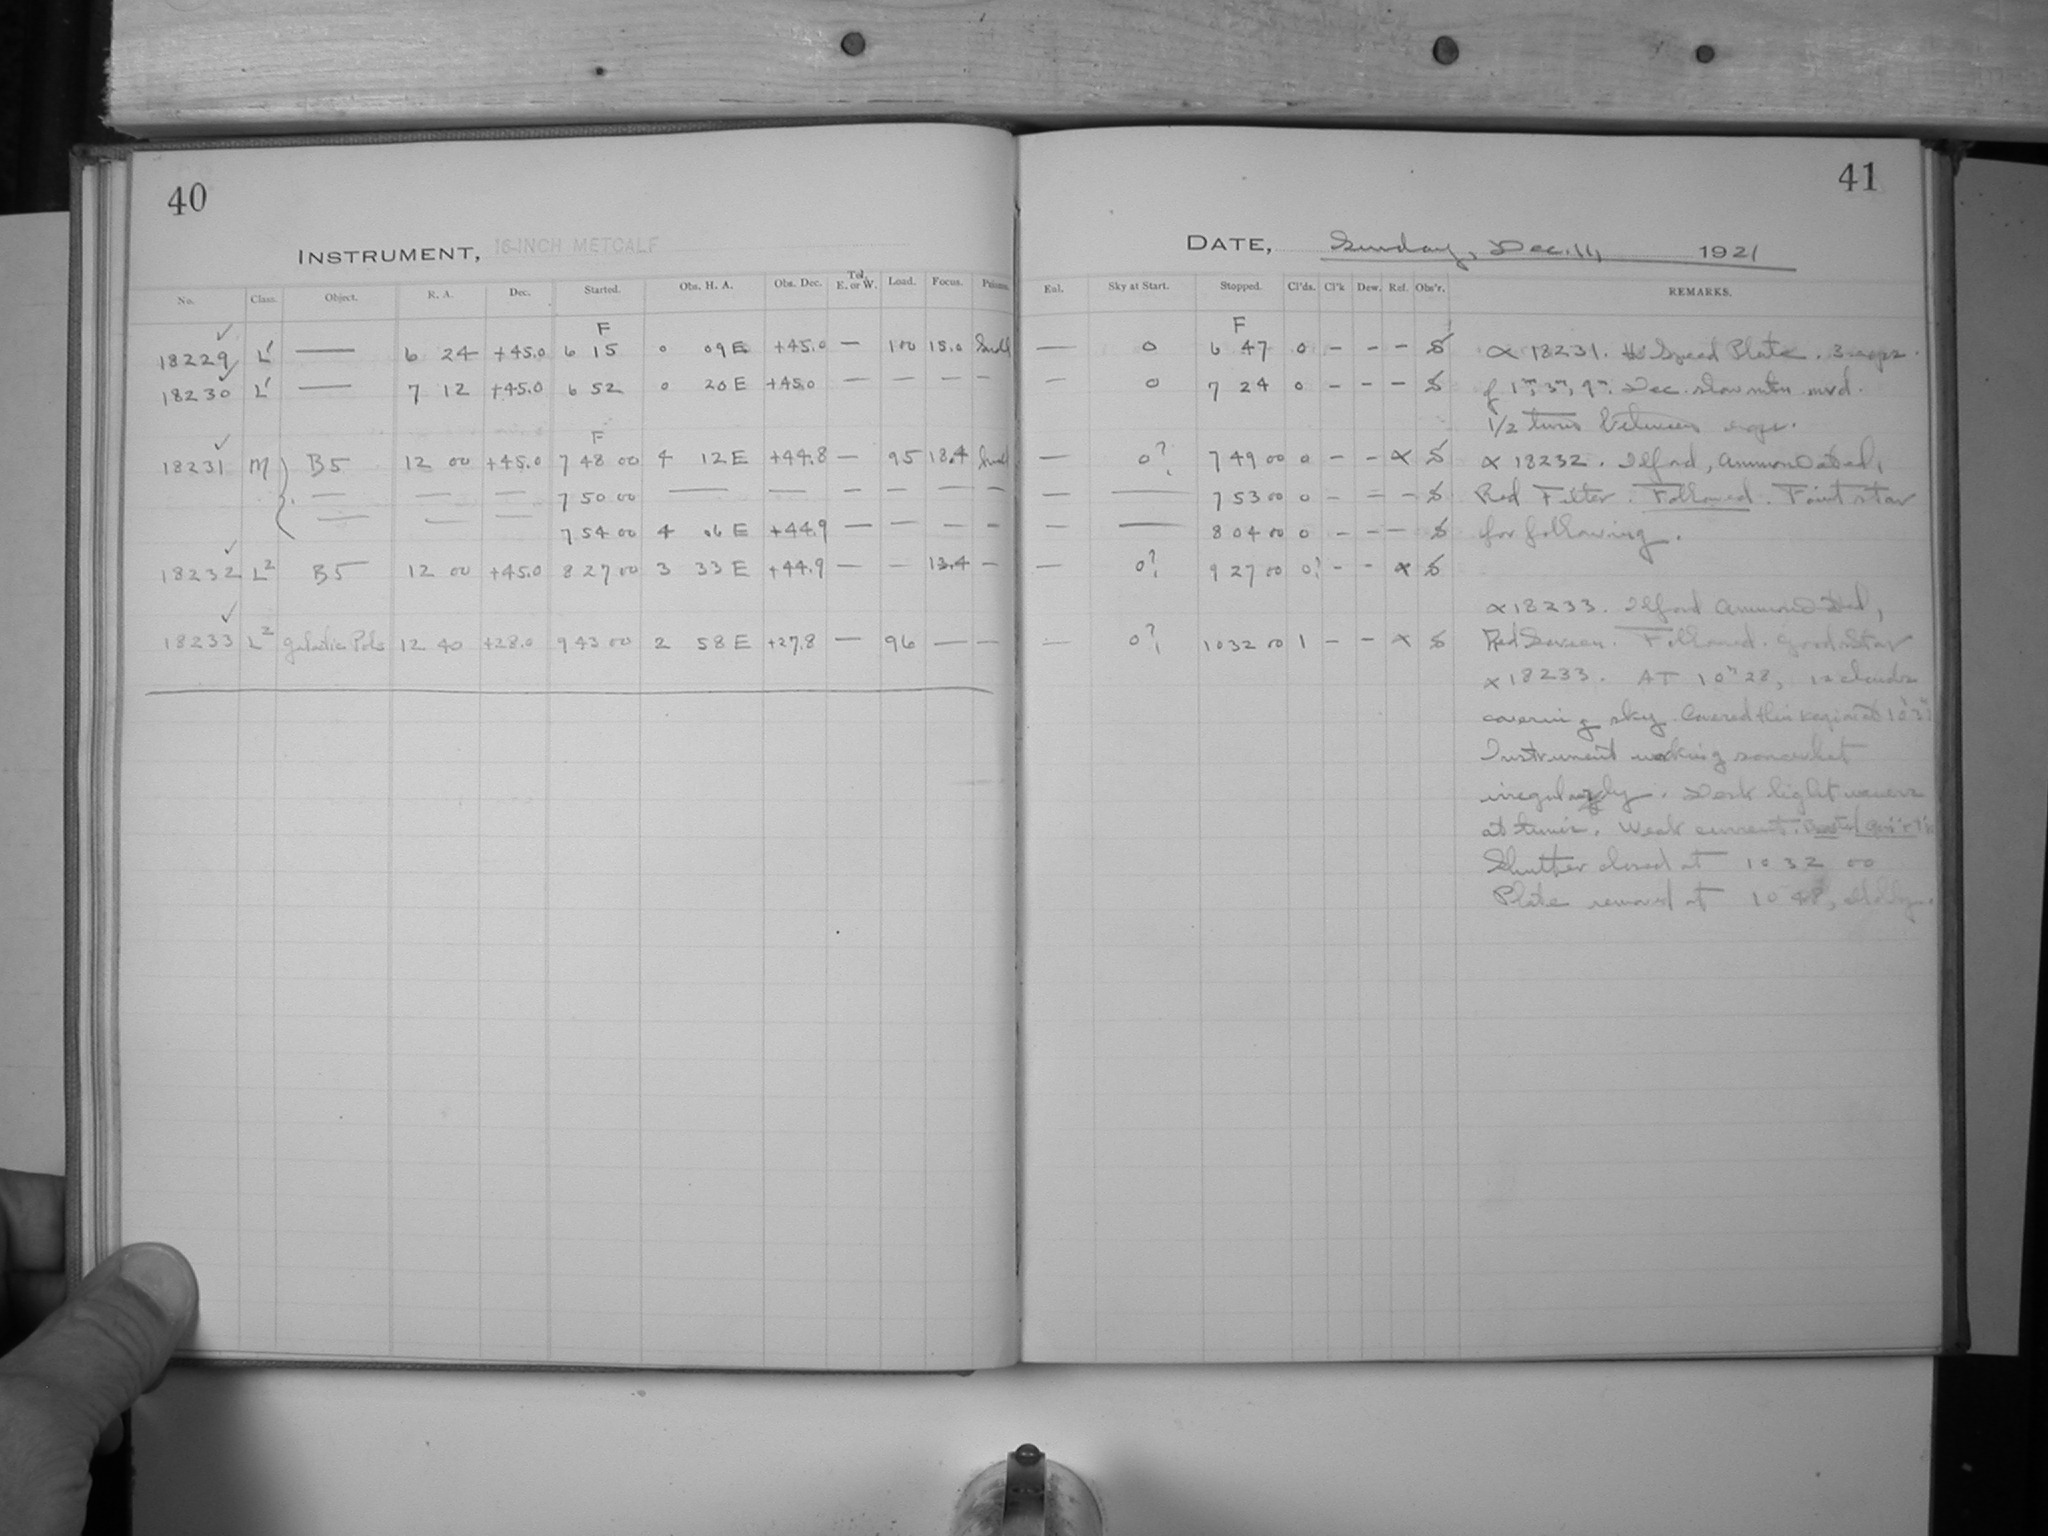 40
INSTRUMENT, 16-INCH METCALF
No. Class. Object. R. A. Dec. Started. Obs. H. A. Obs. Dec. Tel. E. or W. Load. Focus.
F
18229 L' — 6 24 +45.0 6 15 0 09 E +45.0 — 100 15.0
18230 L' — 7 12 +45.0 6 52 0 20 E +45.0 — — — —
F
18231 M B5 12 00 +45.0 7 48 00 4 12 E +44.8 — 95 18.4
— — — 7 50 00 — — — — — —
— — — 7 54 00 4 06 E +44.9 — — — —
18232 L² B5 12 00 +45.0 8 27 00 3 33 E +44.9 — — 13.4 —
18233 L² Galactic Pole 12 40 +28.0 9 43 00 2 58 E +27.8 — 96 — —
41
DATE, Sunday, Dec. 11, 1921
Sky at Start. Stopped. Cl'ds. Cl'k Dew. Ref. Obs'r. REMARKS.
F
— 0 6 47 0 - - - S α 18231. Speed Plate. 3 exps.
— 0 7 24 0 - - - S of 1m, 3m, 9m. Dec. slow mtn mvd.
1/2 turns between exps.
— 0? 7 49 00 0 - - α S α 18232. Ilford, Ammoniated,
— — 7 53 00 0 - = - S Red Filter. Followed. Faint star
— — 8 04 00 0 - - - S for following.
— 0? 9 27 00 0? - - α S
α 18233. Ilford Ammoniated,
— 0? 10 32 00 1 - - α S Red Screen. Followed. Good star
α 18233. AT 10h 28, clouds
covering sky. Covered this region at
Instrument working somewhat
irregularly. Desk light wavers
at times. Weak current.
Shutter closed at 10 32 00
Plate removed at 10 48,